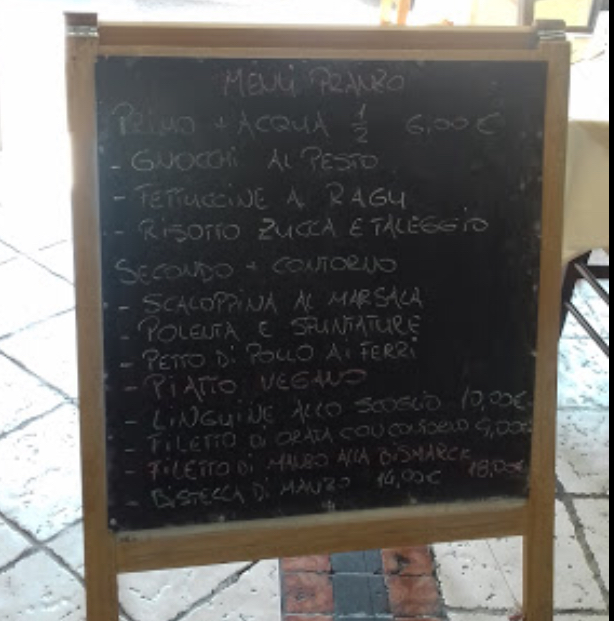 MENÙ PRANZO
PRIMO + ACQUA 1/2 6,00 €
- GNOCCHI AL PESTO
- FETTUCCINE AL RAGÙ
- RISOTTO ZUCCA E TALEGGIO
SECONDO + CONTORNO
- SCALOPPINA AL MARSALA
- POLENTA E SPUNTATURE
- PETTO DI POLLO AI FERRI
- PIATTO VEGANO
- LINGUINE ALLO SCOGLIO 10,00€
- FILETTO DI ORATA CON CONTORNO 9,00€
- FILETTO DI MANZO ALLA BISMARCK 18,00€
- BISTECCA DI MANZO 14,00€